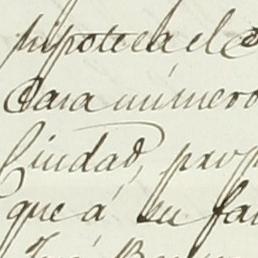 hipoteca el
Casa número
Ciudad, prop
que á su fa